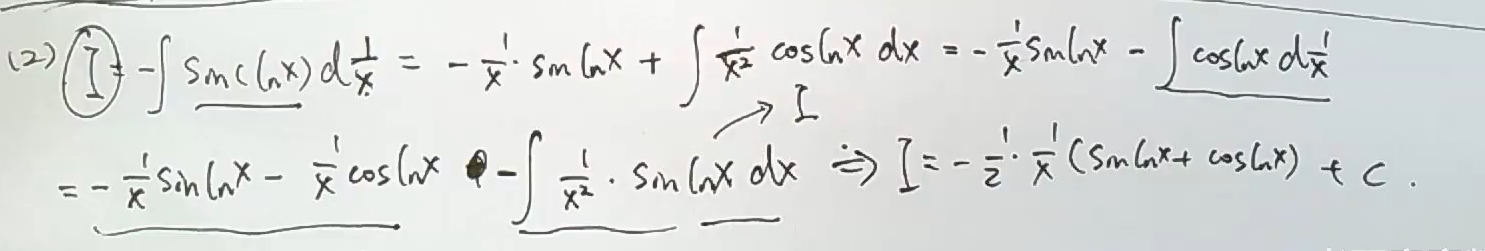 (2) I = -∫ sin(lnx) d 1/x = - 1/x · sin lnx + ∫ 1/x² cos lnx dx = - 1/x sin lnx - ∫ cos lnx d 1/x
→ I
= - 1/x sin lnx - 1/x cos lnx - ∫ 1/x² · sin lnx dx ⇒ I = - 1/2 · 1/x (sin lnx + cos lnx) + C .